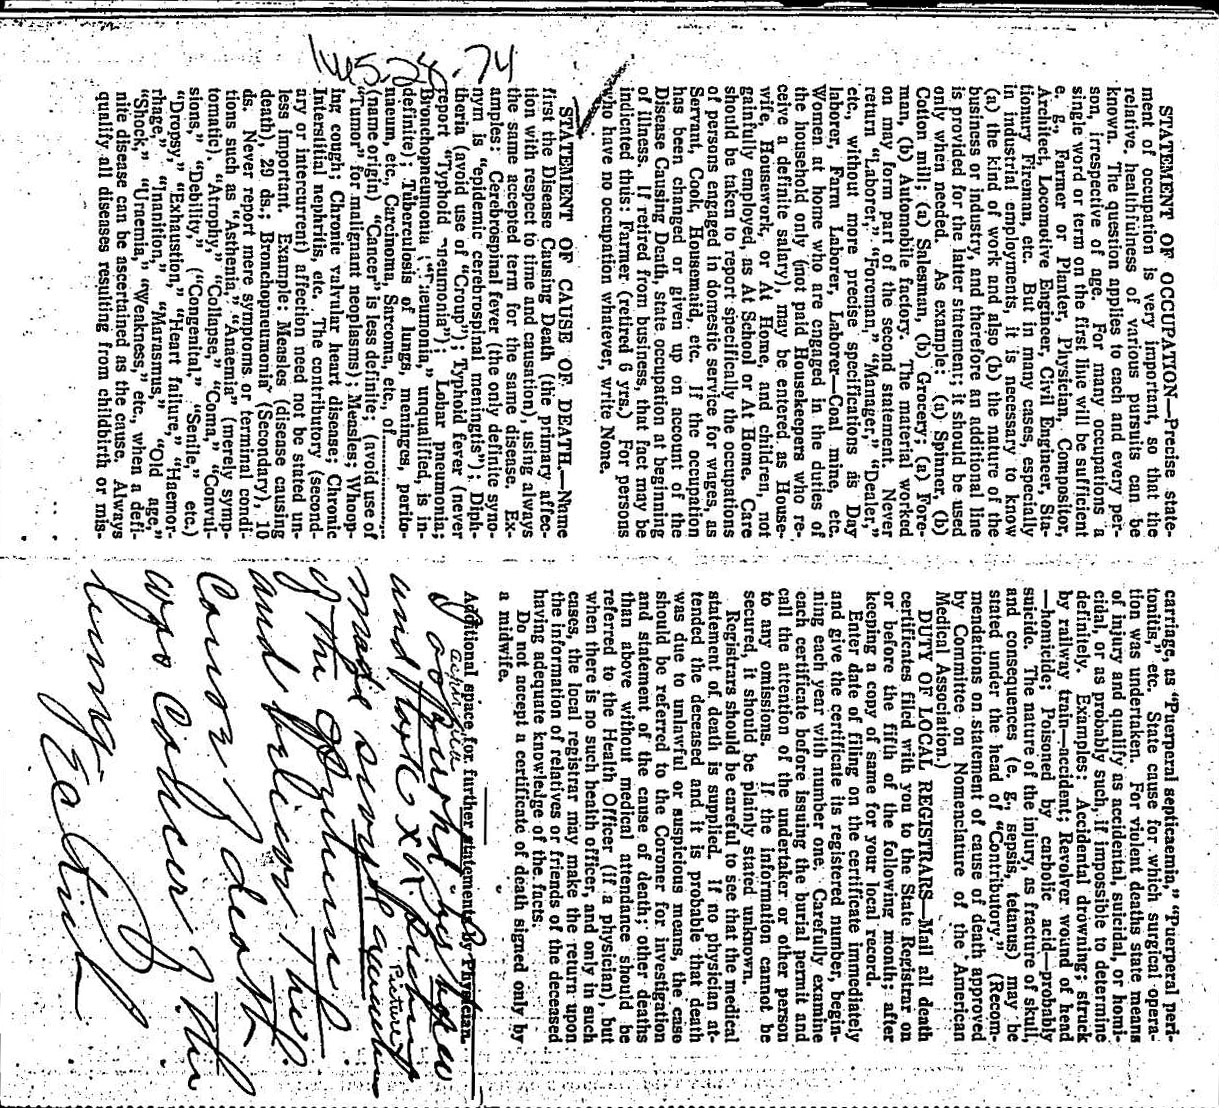 STATEMENT OF OCCUPATION—Precise state-
ment of occupation is very important, so that the
relative, healthfulness of various pursuits can be
known. The question applies to each and every per-
son, irrespective of age. For many occupations a
single word or term on the first line will be sufficient
e. g., Farmer or Planter, Physician, Compositor,
Architect, Locomotive Engineer, Civil Engineer, Sta-
tionary Fireman, etc. But in many cases, especially
in industrial employments, it is necessary to know
(a) the kind of work and also (b) the nature of the
business or industry, and therefore an additional line
is provided for the latter statement; it should be used
only when needed. As example: (a) Spinner, (b)
Cotton mill; (a) Salesman, (b) Grocery; (a) Fore-
man, (b) Automobile factory. The material worked
on may form part of the second statement. Never
return "Laborer," "Foreman," "Manager," "Dealer,"
etc., without more precise specifications as Day
laborer, Farm Laborer, Laborer—Coal mine, etc.
Women at home who are engaged in the duties of
the household only (not paid Housekeepers who re-
ceive a definite salary), may be entered as House-
wife, Housework, or At Home, and children, not
gainfully employed, as At School or At Home. Care
should be taken to report specifically the occupations
of persons engaged in domestic service for wages, as
Servant, Cook, Housemaid, etc. If the occupation
has been changed or given up on account of the
Disease Causing Death, state occupation at beginning
of illness. If retired from business, that fact may be
indicated thus: Farmer (retired 6 yrs.) For persons
who have no occupation whatever, write None.
STATEMENT OF CAUSE OF DEATH.—Name
first the Disease Causing Death (the primary affec-
tion with respect to time and causation), using always
the same accepted term for the same disease. Ex-
amples: Cerebrospinal fever (the only definite syno-
nym is "epidemic cerebrospinal meningtis"); Diph-
theria (avoid use of "Croup"); Typhoid fever (never
report "Typhoid pneumonia"); Lobar pneumonia;
Bronchopneumonia ("Pneumonia," unqualified, is in-
definite); Tuberculosis of lungs, meninges, perito-
naeum, etc., Carcinoma, Sarcoma, etc., of..............
(name origin) "Cancer" is less definite; (avoid use of
"Tumor" for malignant neoplasms); Measles; Whoop-
ing cough; Chronic valvular heart disease; Chronic
Interstitial nephritis, etc. The contributory (second-
ary or intercurrent) affection need not be stated un-
less important. Example: Measles (disease causing
death), 29 ds.; Bronchopneumonia (Secondary), 10
ds. Never report mere symptoms or terminal condi-
tions such as "Asthenia," "Anaemia" (merely symp-
tomatic), "Atrophy," "Collapse," "Coma," "Convul-
sions," "Debility," ("Congenital," "Senile," etc.)
"Dropsy," "Exhaustion," "Heart failure," "Haemor-
rhage," "Inanition," "Marasmus," "Old age,"
"Shock," "Uraemia," "Weakness," etc., when a defi-
nite disease can be ascertained as the cause. Always
qualify all diseases resulting from childbirth or mis-
5.28.74
carriage, as "Puerperal septicaemia," "Puerperal peri-
tonitis," etc. State cause for which surgical opera-
tion was undertaken. For violent deaths state means
of injury and qualify as accidental, suicidal, or homi-
cidal, or as probably such, if impossible to determine
definitely. Examples: Accidental drowning; struck
by railway train—accident; Revolver wound of head
—homicide; Poisoned by carbolic acid—probably
suicide. The nature of the injury, as fracture of skull,
and consequences (e. g., sepsis, tetanus) may be
stated under the head of "Contributory." (Recom-
mendations on statement of cause of death approved
by Committee on Nomenclature of the American
Medical Association.)
DUTY OF LOCAL REGISTRARS—Mail all death
certificates filed with you to the State Registrar on
or before the fifth of the following month; after
keeping a copy of same for your local record.
Enter date of filing on the certificate immediately
and give the certificate its registered number, begin-
ning each year with number one. Carefully examine
each certificate before issuing the burial permit and
call the attention of the undertaker or other person
to any omissions. If the information cannot be
secured, it should be plainly stated unknown.
Registrars should be careful to see that the medical
statement of death is supplied. If no physician at-
tended the deceased and it is probable that death
was due to unlawful or suspicious means, the case
should be referred to the Coroner for investigation
and statement of the cause of death; other deaths
than above without medical attendance should be
referred to the Health Officer (if a physician), but
when there is no such health officer, and only in such
cases, the local registrar may make the return upon
the information of relatives or friends of the deceased
having adequate knowledge of the facts.
Do not accept a certificate of death signed only by
a midwife.
Additional space for further statements by Physician.
I
and took x
Picture
made
of the
and believe this
death
was